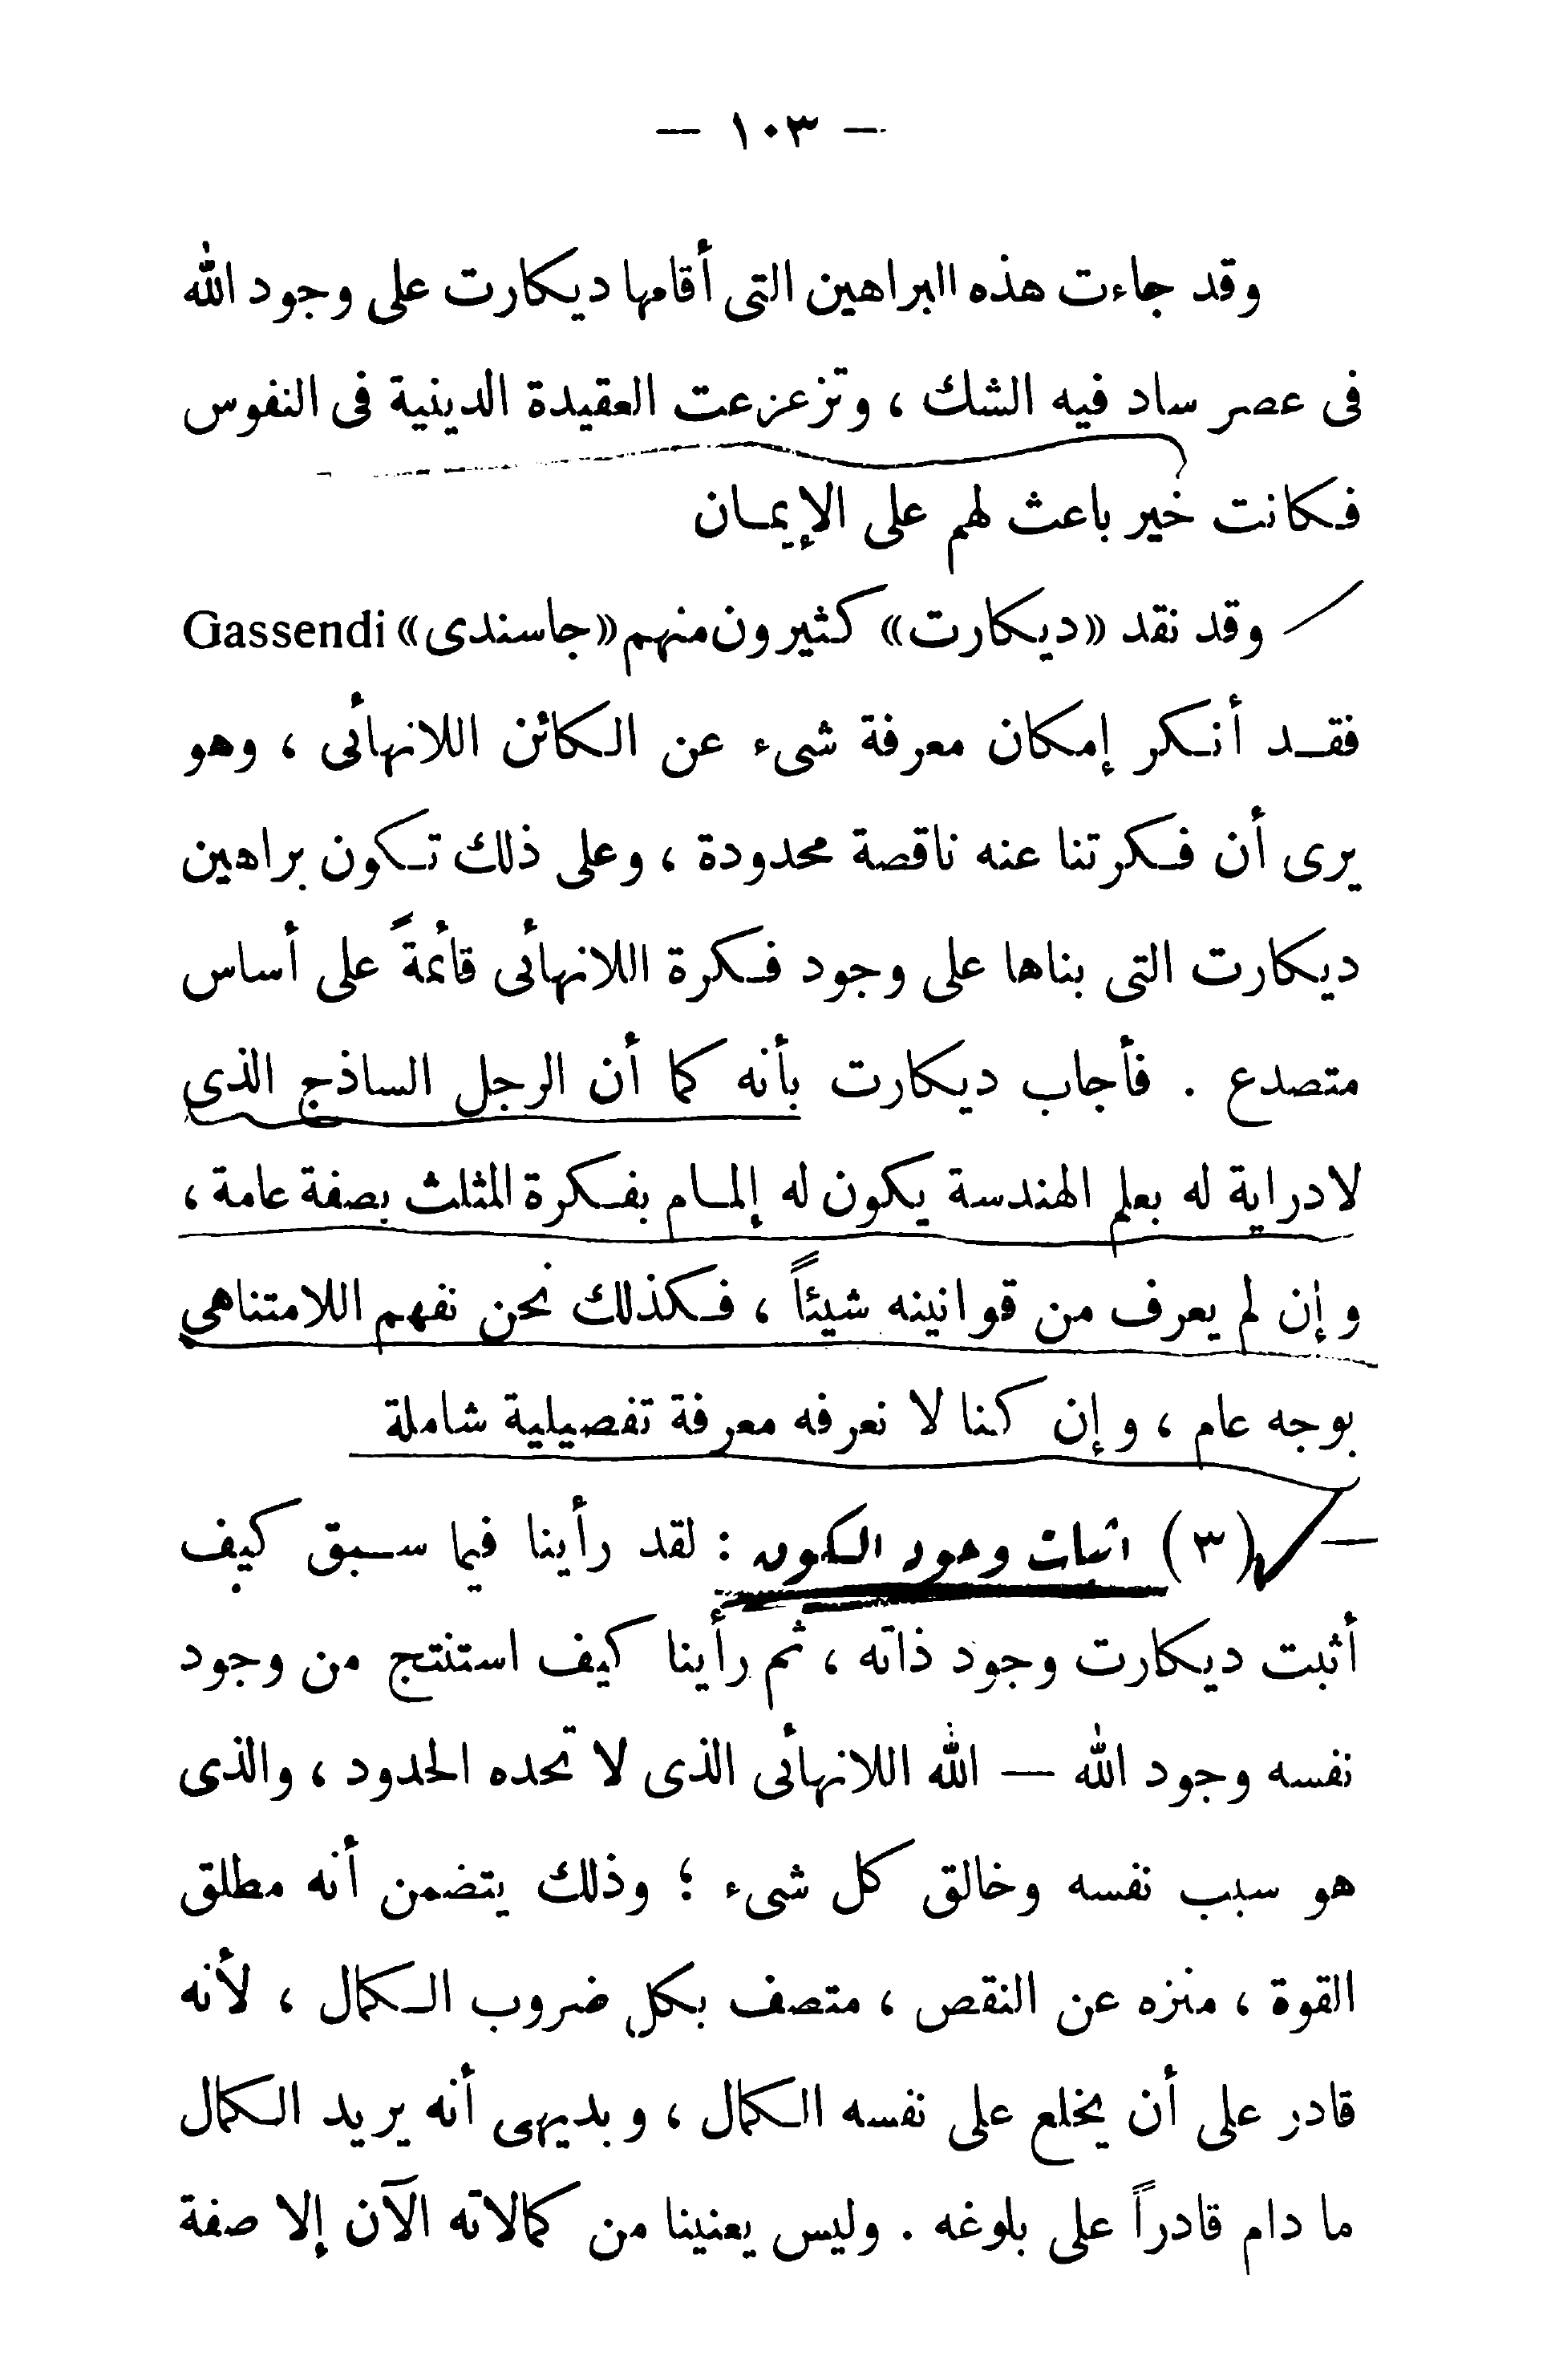 — ١٠٣ —
وقد جاءت هذه البراهين التى أقامها ديكارت على وجود الله
فى عصر ساد فيه الشك ، وتزعزعت العقيدة الدينية فى النفوس
فكانت خير باعث لهم على الإيمان
وقد نقد «ديكارت» كثيرون منهم «جاسندى» Gassendi
فقد أنكر إمكان معرفة شىء عن الكائن اللانهائى ، وهو
يرى أن فكرتنا عنه ناقصة محدودة ، وعلى ذلك تكون براهين
ديكارت التى بناها على وجود فكرة اللانهائى قائمةً على أساس
متصدع . فأجاب ديكارت بأنه كما أن الرجل الساذج الذى
لا دراية له بعلم الهندسة يكون له إلمام بفكرة المثلث بصفة عامة ،
وإن لم يعرف من قوانينه شيئاً ، فكذلك نحن نفهم اللامتناهى
بوجه عام ، وإن كنا لا نعرفه معرفة تفصيلية شاملة
— (٣) اثبات وجود الكون : لقد رأينا فيما سبق كيف
أثبت ديكارت وجود ذاته ، ثم رأينا كيف استنتج من وجود
نفسه وجود الله — الله اللانهائى الذى لا تحده الحدود ، والذى
هو سبب نفسه وخالق كل شىء ؛ وذلك يتضمن أنه مطلق
القوة ، منزه عن النقص ، متصف بكل ضروب الكمال ، لأنه
قادر على أن يخلع على نفسه الكمال ، وبديهى أنه يريد الكمال
ما دام قادراً على بلوغه . وليس يعنينا من كمالاته الآن إلا صفة